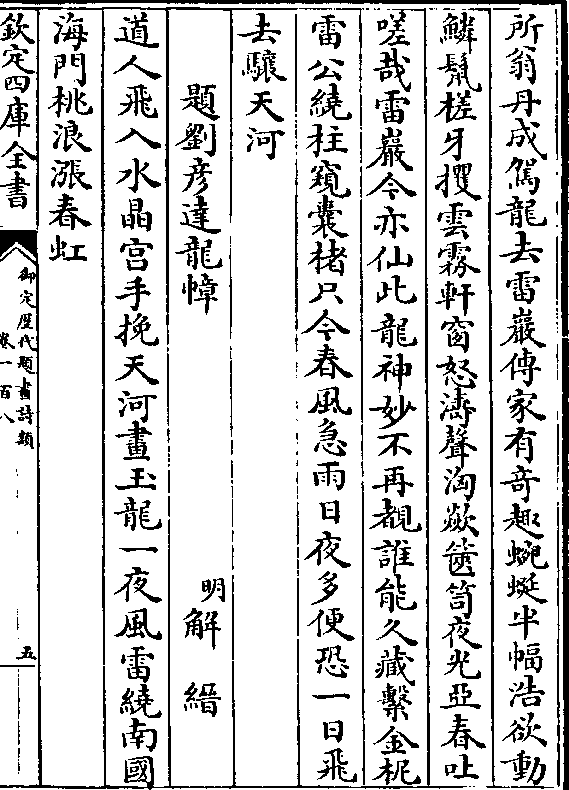 所翁丹成駕龍去雷巖傳家有竒趣蜿蜒半幅浩欲動
鱗鬛槎牙攫雲霧軒窗怒濤聲洶歘篋笥夜光亞春吐
嗟哉雷巖今亦仙此龍神妙不再覩誰能久藏繫金柅
雷公繞柱窺囊楮只今春風急雨日夜多便恐一日飛
去驤天河
題劉彦達龍幛
明解縉
道人飛入水晶宫手挽天河畫玉龍一夜風雷繞南國
海門桃浪漲春虹
欽定四庫全書
御定歴代題畫詩類
卷一百八
五